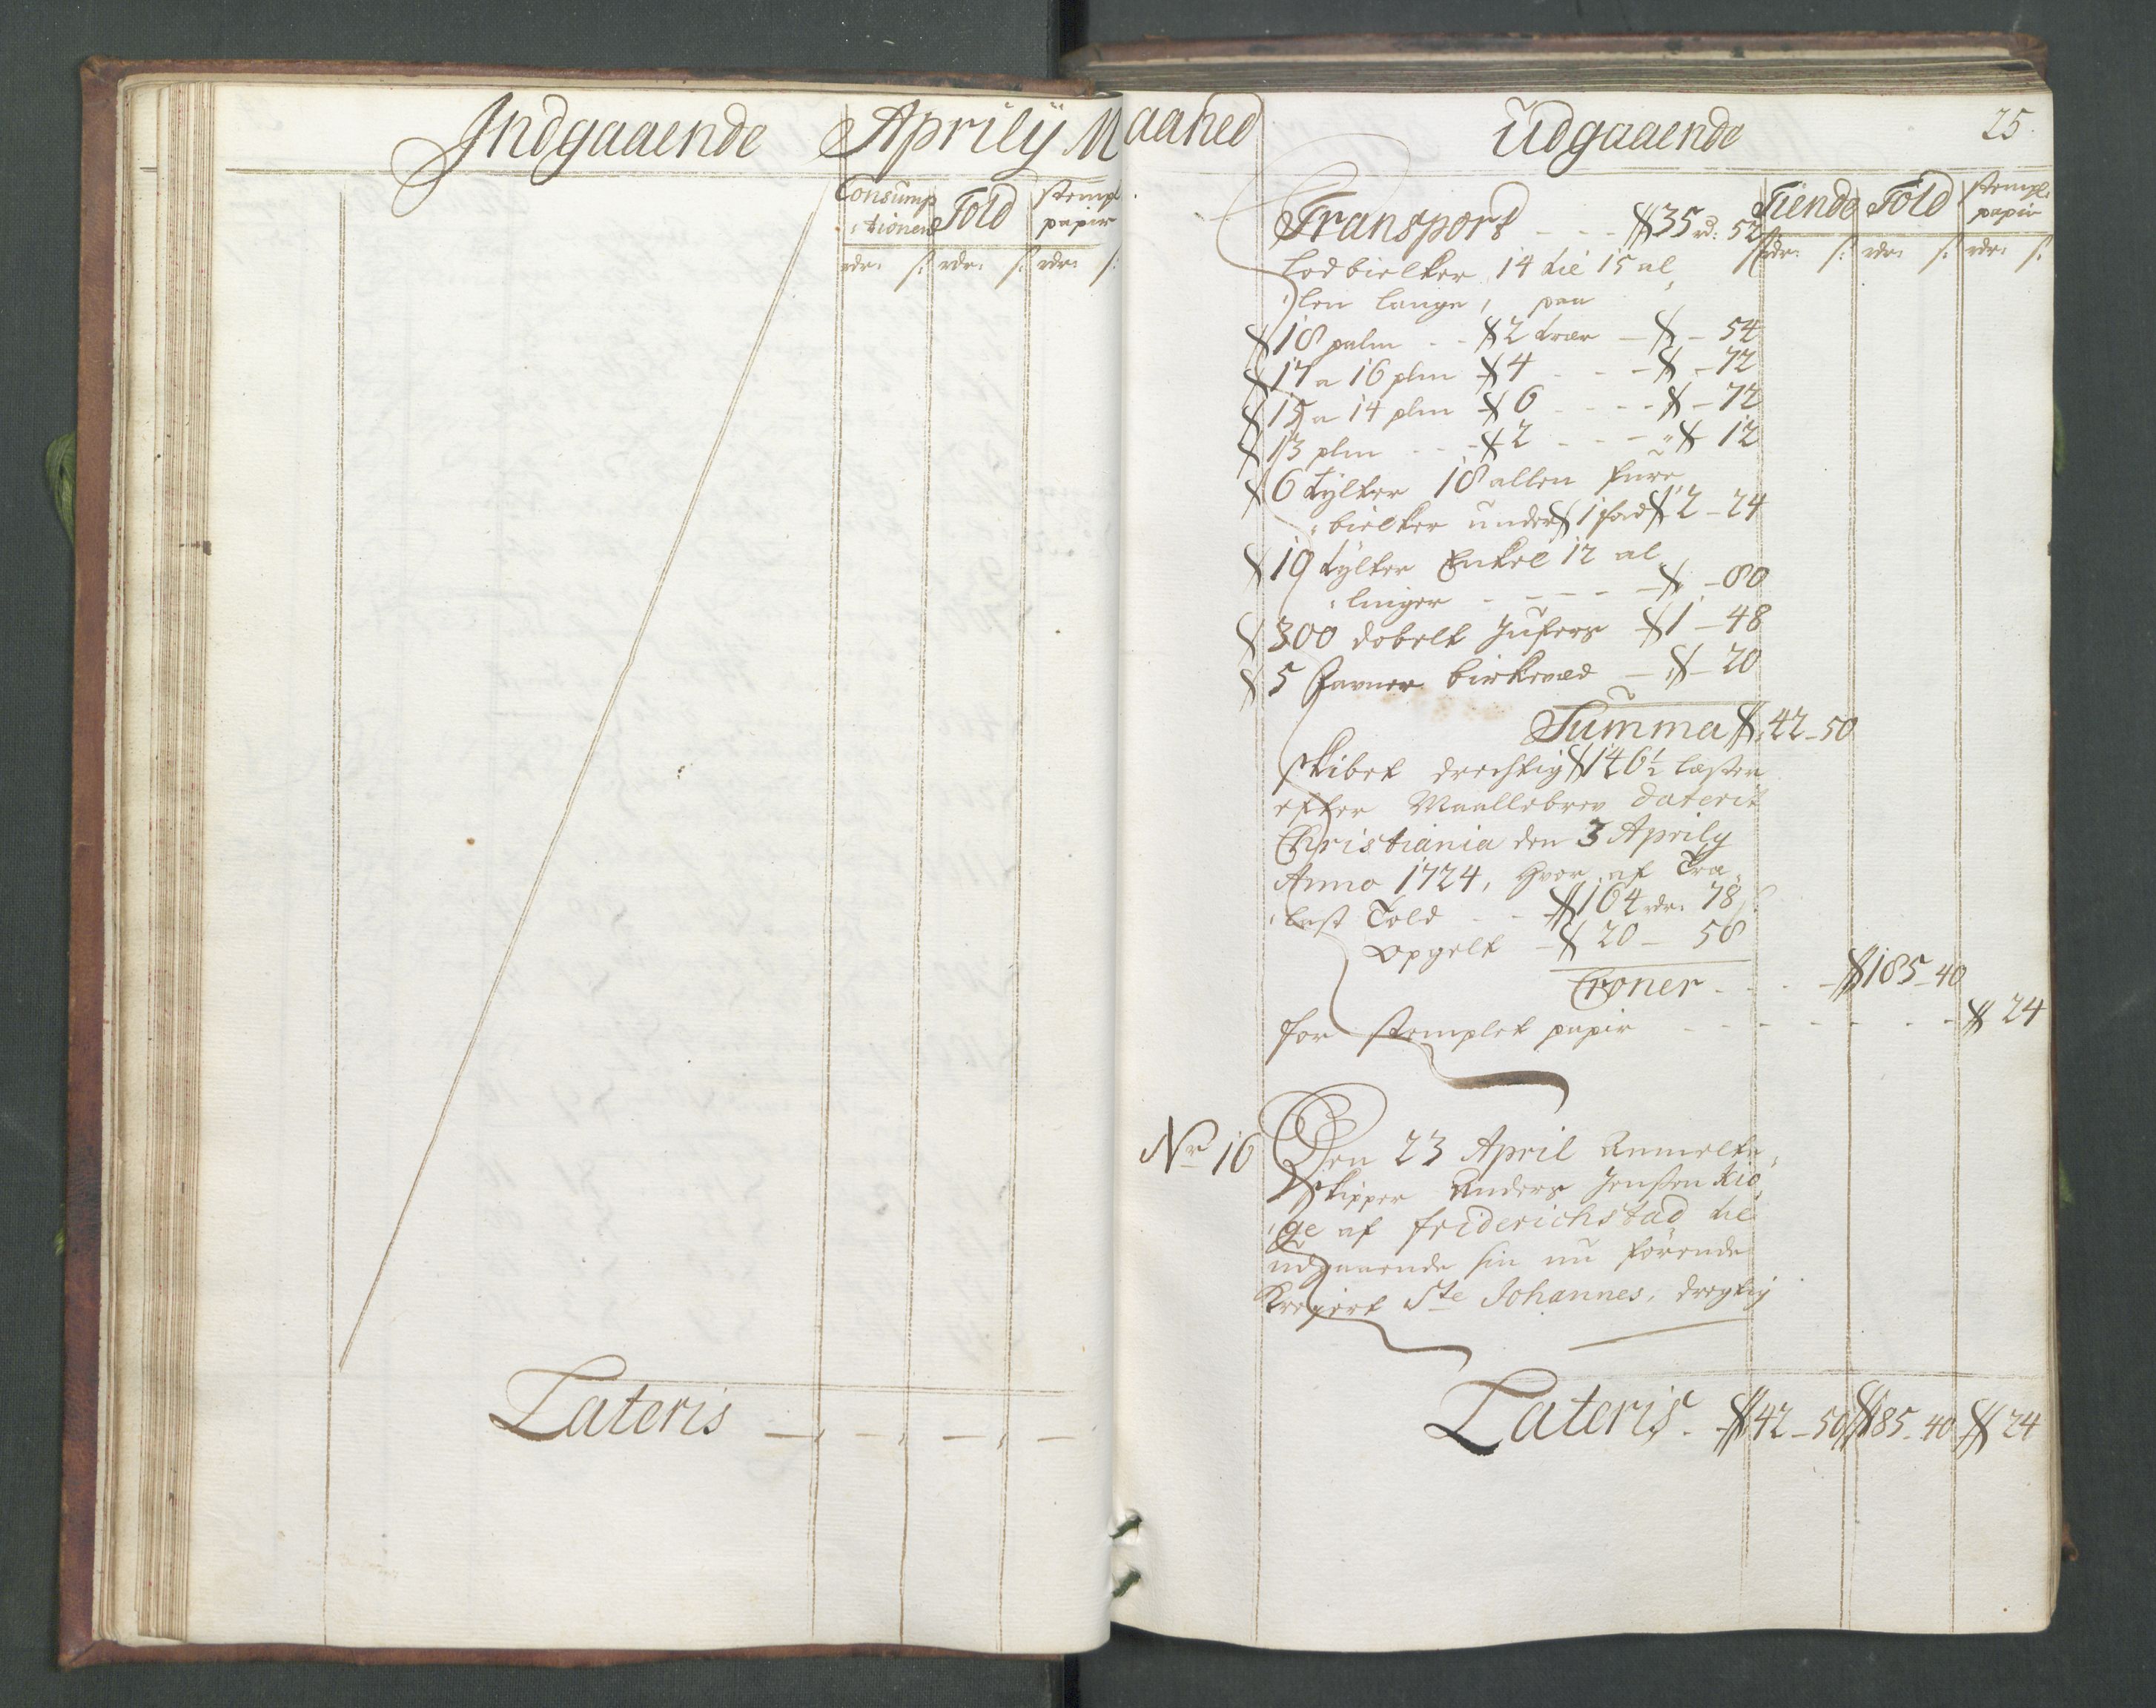 Indgaaende Aprilij Maaned
Consump
tionen Told stempl
papir
rdr: s: rdr: s: rdr: s:
Lateris
Udgaaende 25.
Tiende Told stempl:
papir
rdr: s: rdr: s: rdr: s:
Transport - - - 35 rd: 52
Lodbielker 14 til 15 al
len lange, paa
18 palm - - 2 træer - - 54
17 a 16 plm 4 - - - - 72
15 a 14 plm 6 - - - - 72
13 plm - - 2 - - - 12
6 tylter 18 allen furre
bielker under 1 fod 2 - 24
10 tylter Enkel 12 al
linger - - - - - 80
300 dobelt Jufers 1 - 48
5 favner birkeved - - 20
Summa 42 - 50
Skibet drechtig 146½ læster
efter Maallebrev daterit
Christiania den 3 Aprily
Anno 1724, hvor af Tra
last Told - - 164 rdr: 78 s:
Opgelt - 20 - 58
Croner - - - 185 - 40
for stemplet papir - - - - - - 24
Nr 16 Den 23 April Anmelte
Skipper Anders Jenssen Kiö
ge af friderichstad til
udgaaende sin nu förende
Krejert Ste Johannes, dregtig
Lateris. 42 - 50 185 - 40 24